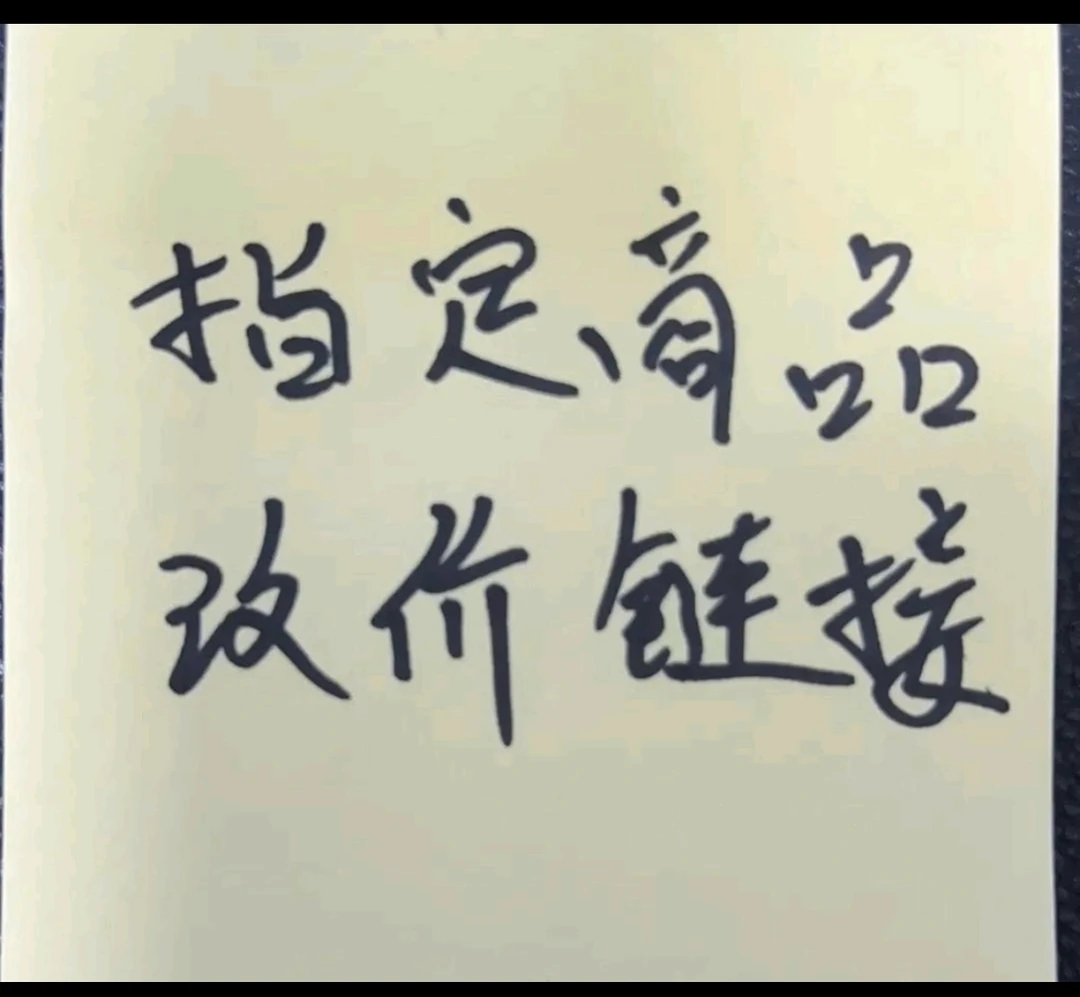 指定商品
改价链接